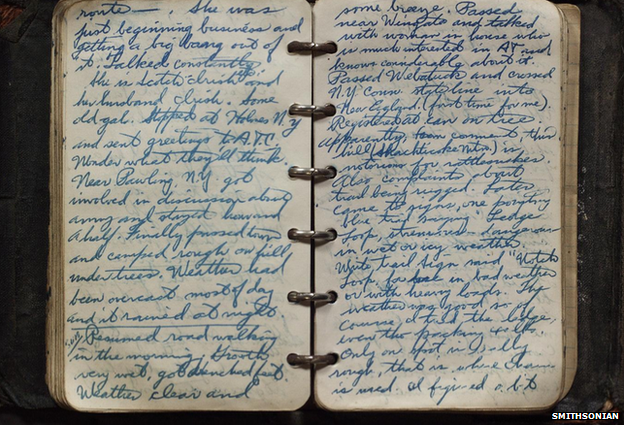 route — . She was
just beginning business and
getting a big bang out of
it. Talked constantly.
She is Scotch-Irish and
her husband Irish. Some
old gal. Stopped at Holmes N.Y
and sent greetings to A.T.C.
Wonder what they'll think.
Near Pawling, N.Y. got
involved in discussion about
army and stayed hour and
a half. Finally passed town
and camped rough on hill
under trees. Weather had
been overcast most of day
and it rained at night
Resumed road walking
in the morning. Growth
very wet, got drenched feet.
Weather clear and
some breeze. Passed
near Wingdale and talked
with woman in house who
is much interested in AT and
knows considerable about it.
Passed Webatuck and crossed
N.Y. Conn. state line into
New England. (first time for me).
Registered at can on tree.
Apparently, teen comment this
hill (Schaghticoke Mtn.) is
notorious for rattlesnakes.
Also complaints about
trail being rugged. Later
came to signs, one pointing
blue trail saying "Ledge
Loop, strenuous - dangerous
in wet or icy weather.
White trail sign said "
Loop, for use in bad weather
or with heavy loads. The
weather was good so of
course, I tried the ledge,
even tho packing 40 lbs.
Only one spot in I really
rough, that is where chain
is used. I figured a bit
SMITHSONIAN